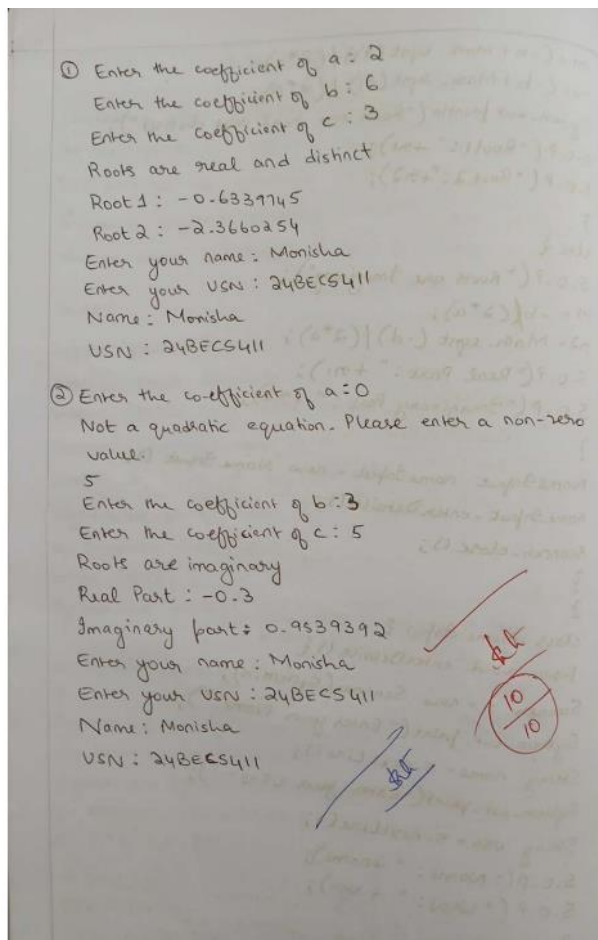 ① Enter the coefficient of a : 2
Enter the coefficient of b : 6
Enter the coefficient of c : 3
Roots are real and distinct
Root 1 : -0.6339745
Root 2 : -2.3660254
Enter your name : Monisha
Enter your USN : 24BECS411
Name : Monisha
USN : 24BECS411
② Enter the co-efficient of a : 0
Not a quadratic equation. Please enter a non-zero
value.
5
Enter the coefficient of b : 3
Enter the coefficient of c : 5
Roots are imaginary
Real Part : -0.3
Imaginary part : 0.9539392
Enter your name : Monisha
Enter your USN : 24BECS411
Name : Monisha
USN : 24BECS411
10
10